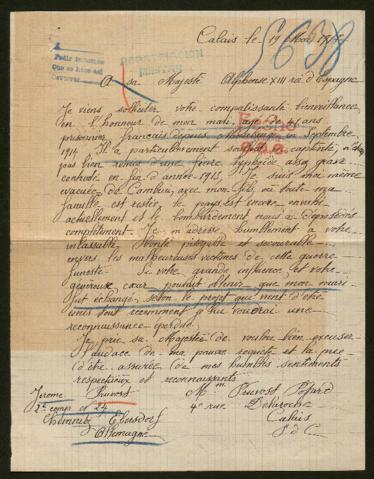 Calais le 19 Mai 1917
5698
Pedir
A sa Majesté Alphonse XIII roi d'Espagne
Je viens solliciter votre compatissante bienveillance
en l'honneur de mon mari, agé de ans
prisonnier français depuis Maubeuge, en Septembre
1914. Il a particulièrement souffert en captivité, n'étant
pas bien remis d'une fièvre typhoïde assez grave
contractée en fin d'année 1913. Je suis moi même
évacuée de Cambrai, avec mon fils, où toute ma
famille est restée, le pays est encore envahi
actuellement et le bombardement nous a
complètement. Je m'adresse humblement à votre
inlassable bonté
envers les malheureuses victimes de cette guerre
funeste. Si votre grande influence et votre
généreux cœur pouvait obtenir que mon mari
fut échangé, selon le projet qui vient d'être
tout récemment je lui vouerai une
reconnaissance éperdue.
Je prie sa Majesté de vouloir bien excuser
l'audace de ma pauvre requête et la prie
d'être assurée de mes humbles sentiments
respectueux et reconnaissants.
Jerome Pruvost
2e comp. et 24
Chemnitz Ebersdorf
Allemagne
Mme Pruvost
4 rue Delaroche
Calais
P. d. C.